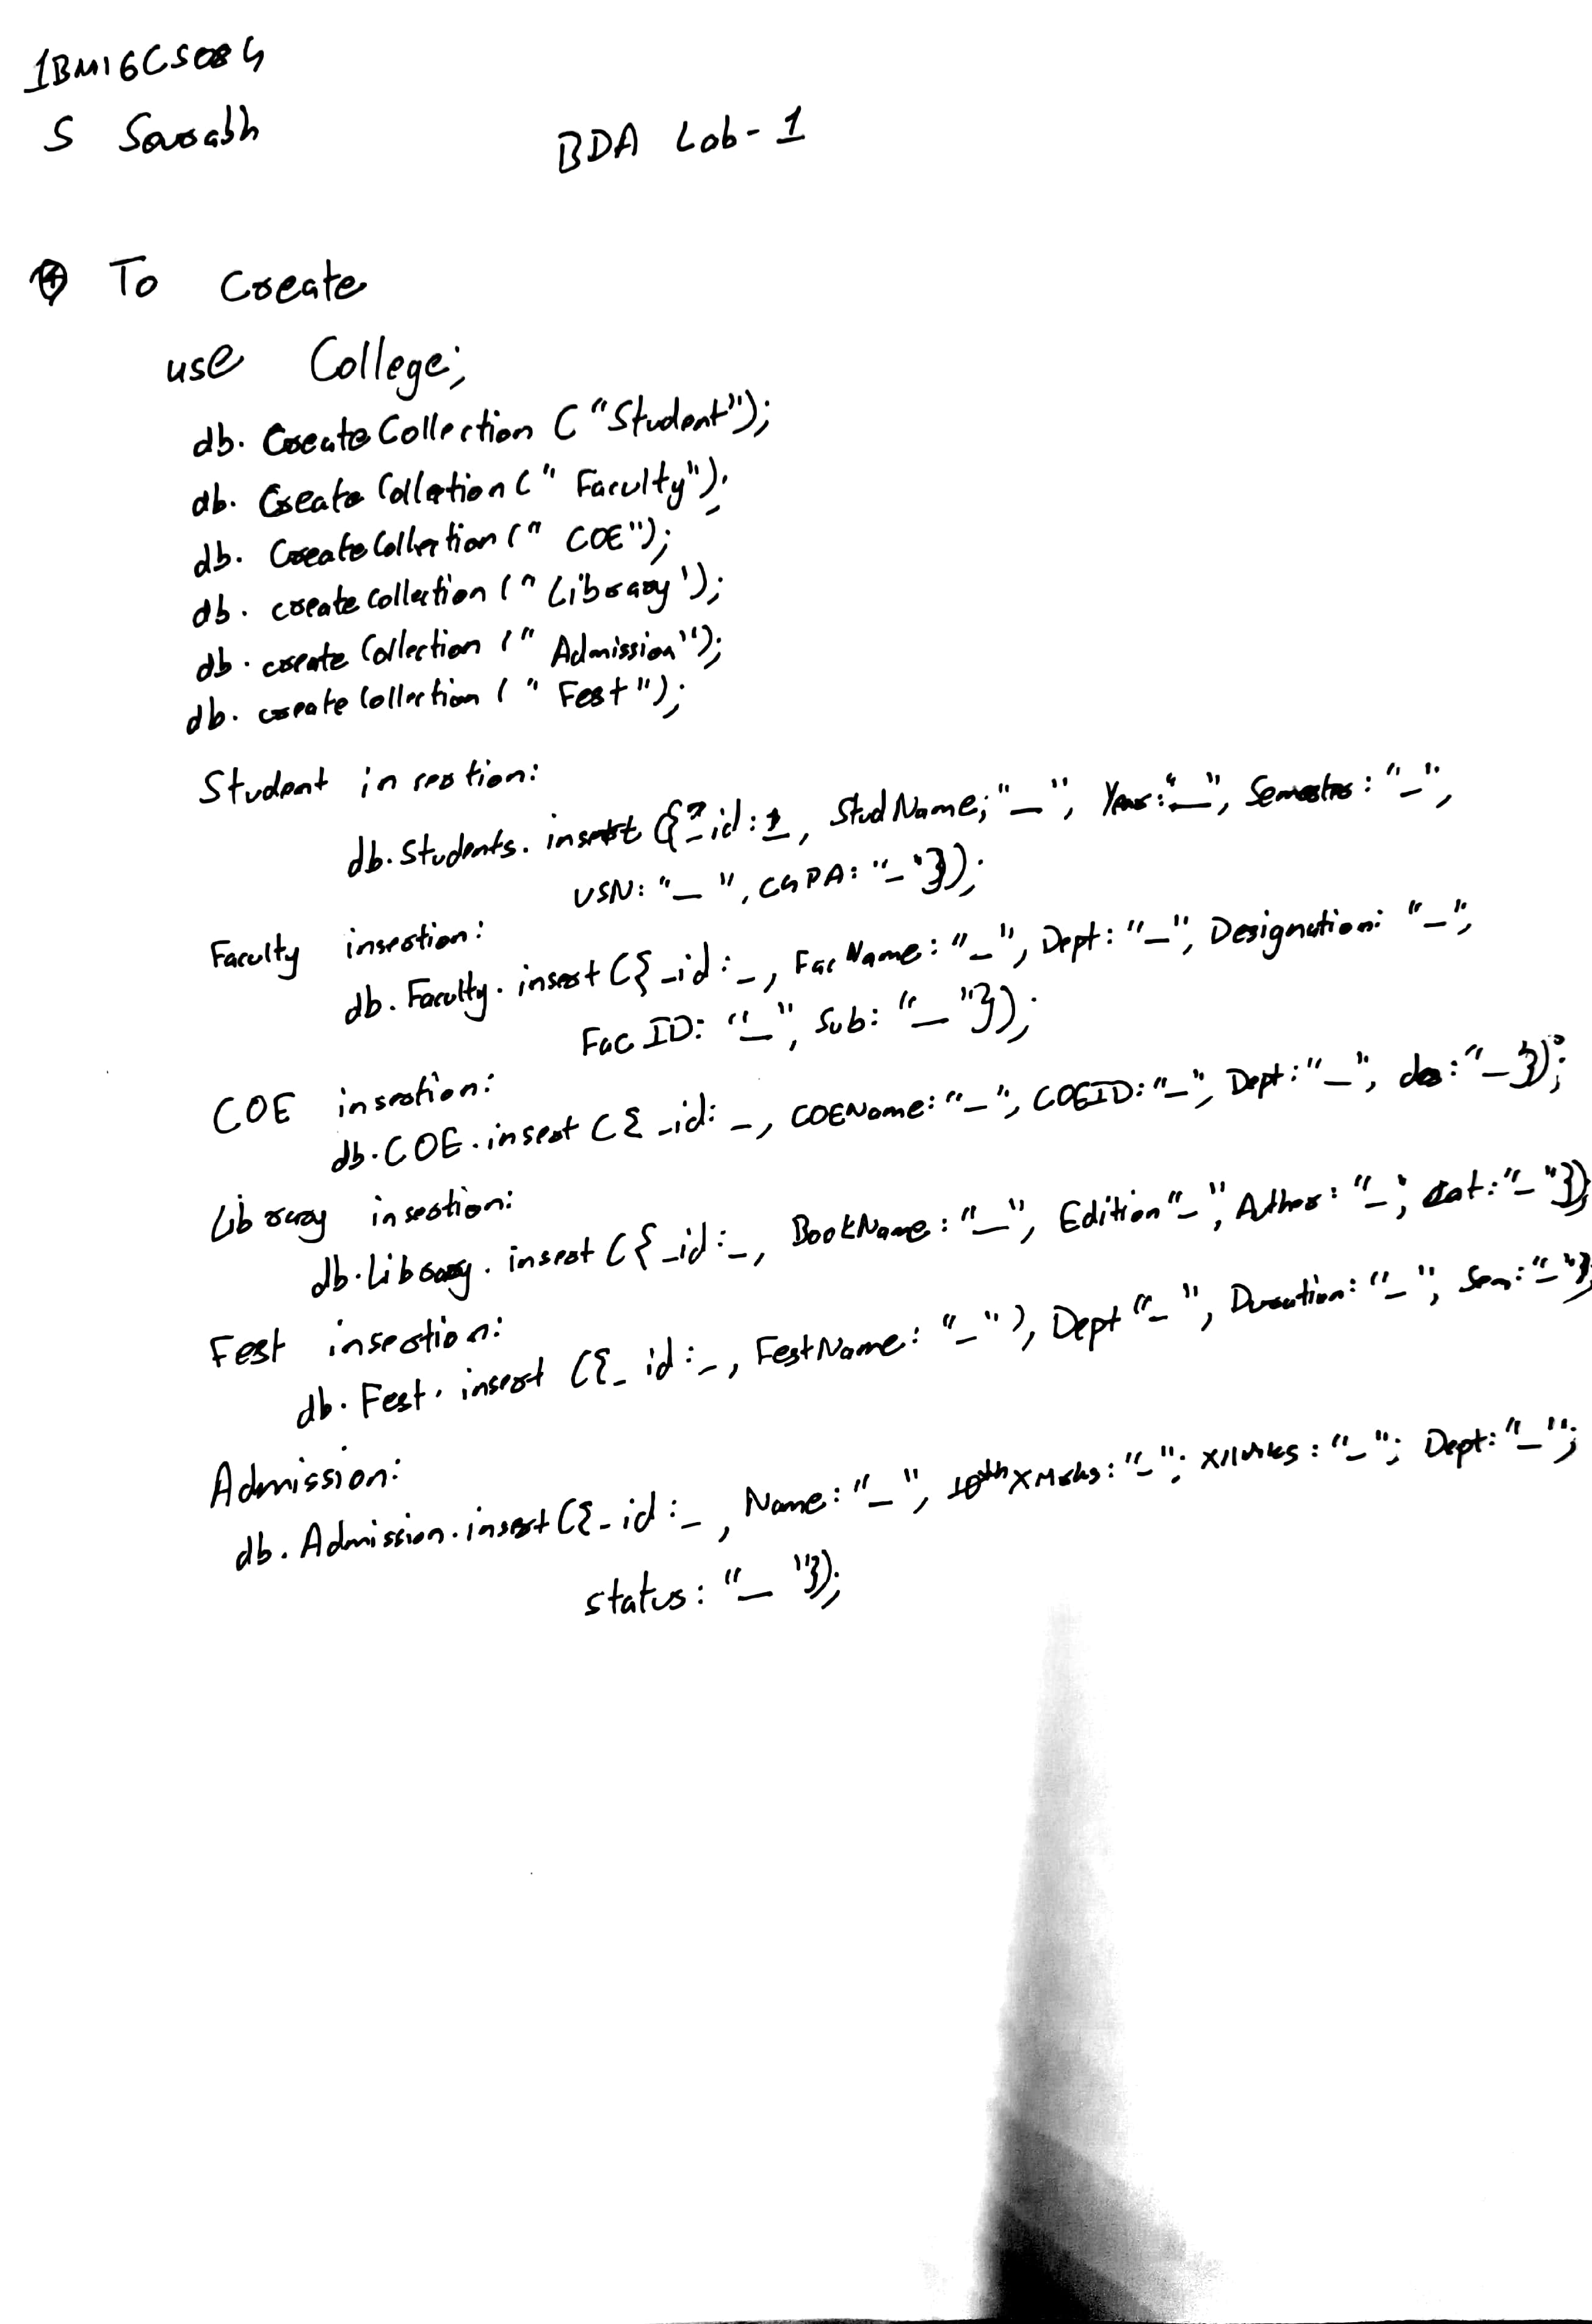 1BM16CS084
S Sourabh
BDA Lab-1
To Create
use College;
db. CreateCollection ("Student");
db. Create Collection (" Faculty");
db. CreateCollection (" COE");
db. createCollection (" Library');
db. create Collection (" Admission");
db. create Collection (" Fest");
Student insertion:
db.Students. insert ({_id:1, StudName;"_", Year:"_", Semester: "_",
USN: "_", CGPA: "_"});
Faculty insertion:
db. Faculty. insert ({_id:_, FacName: "_", Dept: "_", Designation: "_",
Fac ID: "_", Sub: "_"});
COE insertion:
db.COE.insert ({_id: _, COEName: "_", COEID: "_", Dept: "_", des: "_});
Library insertion:
db.Library. insert ({_id:_, BookName: "_", Edition"_", Author: "_", cat: "_"})
Fest insertion:
db. Fest. insert ({_id:_, FestName: "_"), Dept "_", Duration: "_", Sem: "_"}
Admission:
db. Admission.insert({_id:_, Name: "_", XMrks: "_"; XIIMrks: "_"; Dept: "_";
status: "_"});